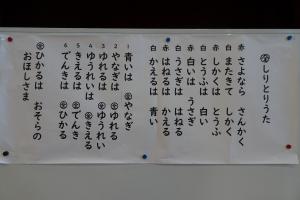 ㊎しりとりうた
赤 さよなら さんかく
白 またきて しかく
赤 しかくは とうふ
白 とうふは 白い
赤 白いは うさぎ
白 うさぎは はねる
赤 はねるは かえる
白 かえるは 青い
1 青いは ㊎やなぎ
2 やなぎは ㊎ゆれる
3 ゆれるは ㊎ゆうれい
4 ゆうれいは ㊎きえる
5 きえるは ㊎でんき
6 でんきは ㊎ひかる
㊎ひかるは おそらの
おほしさま